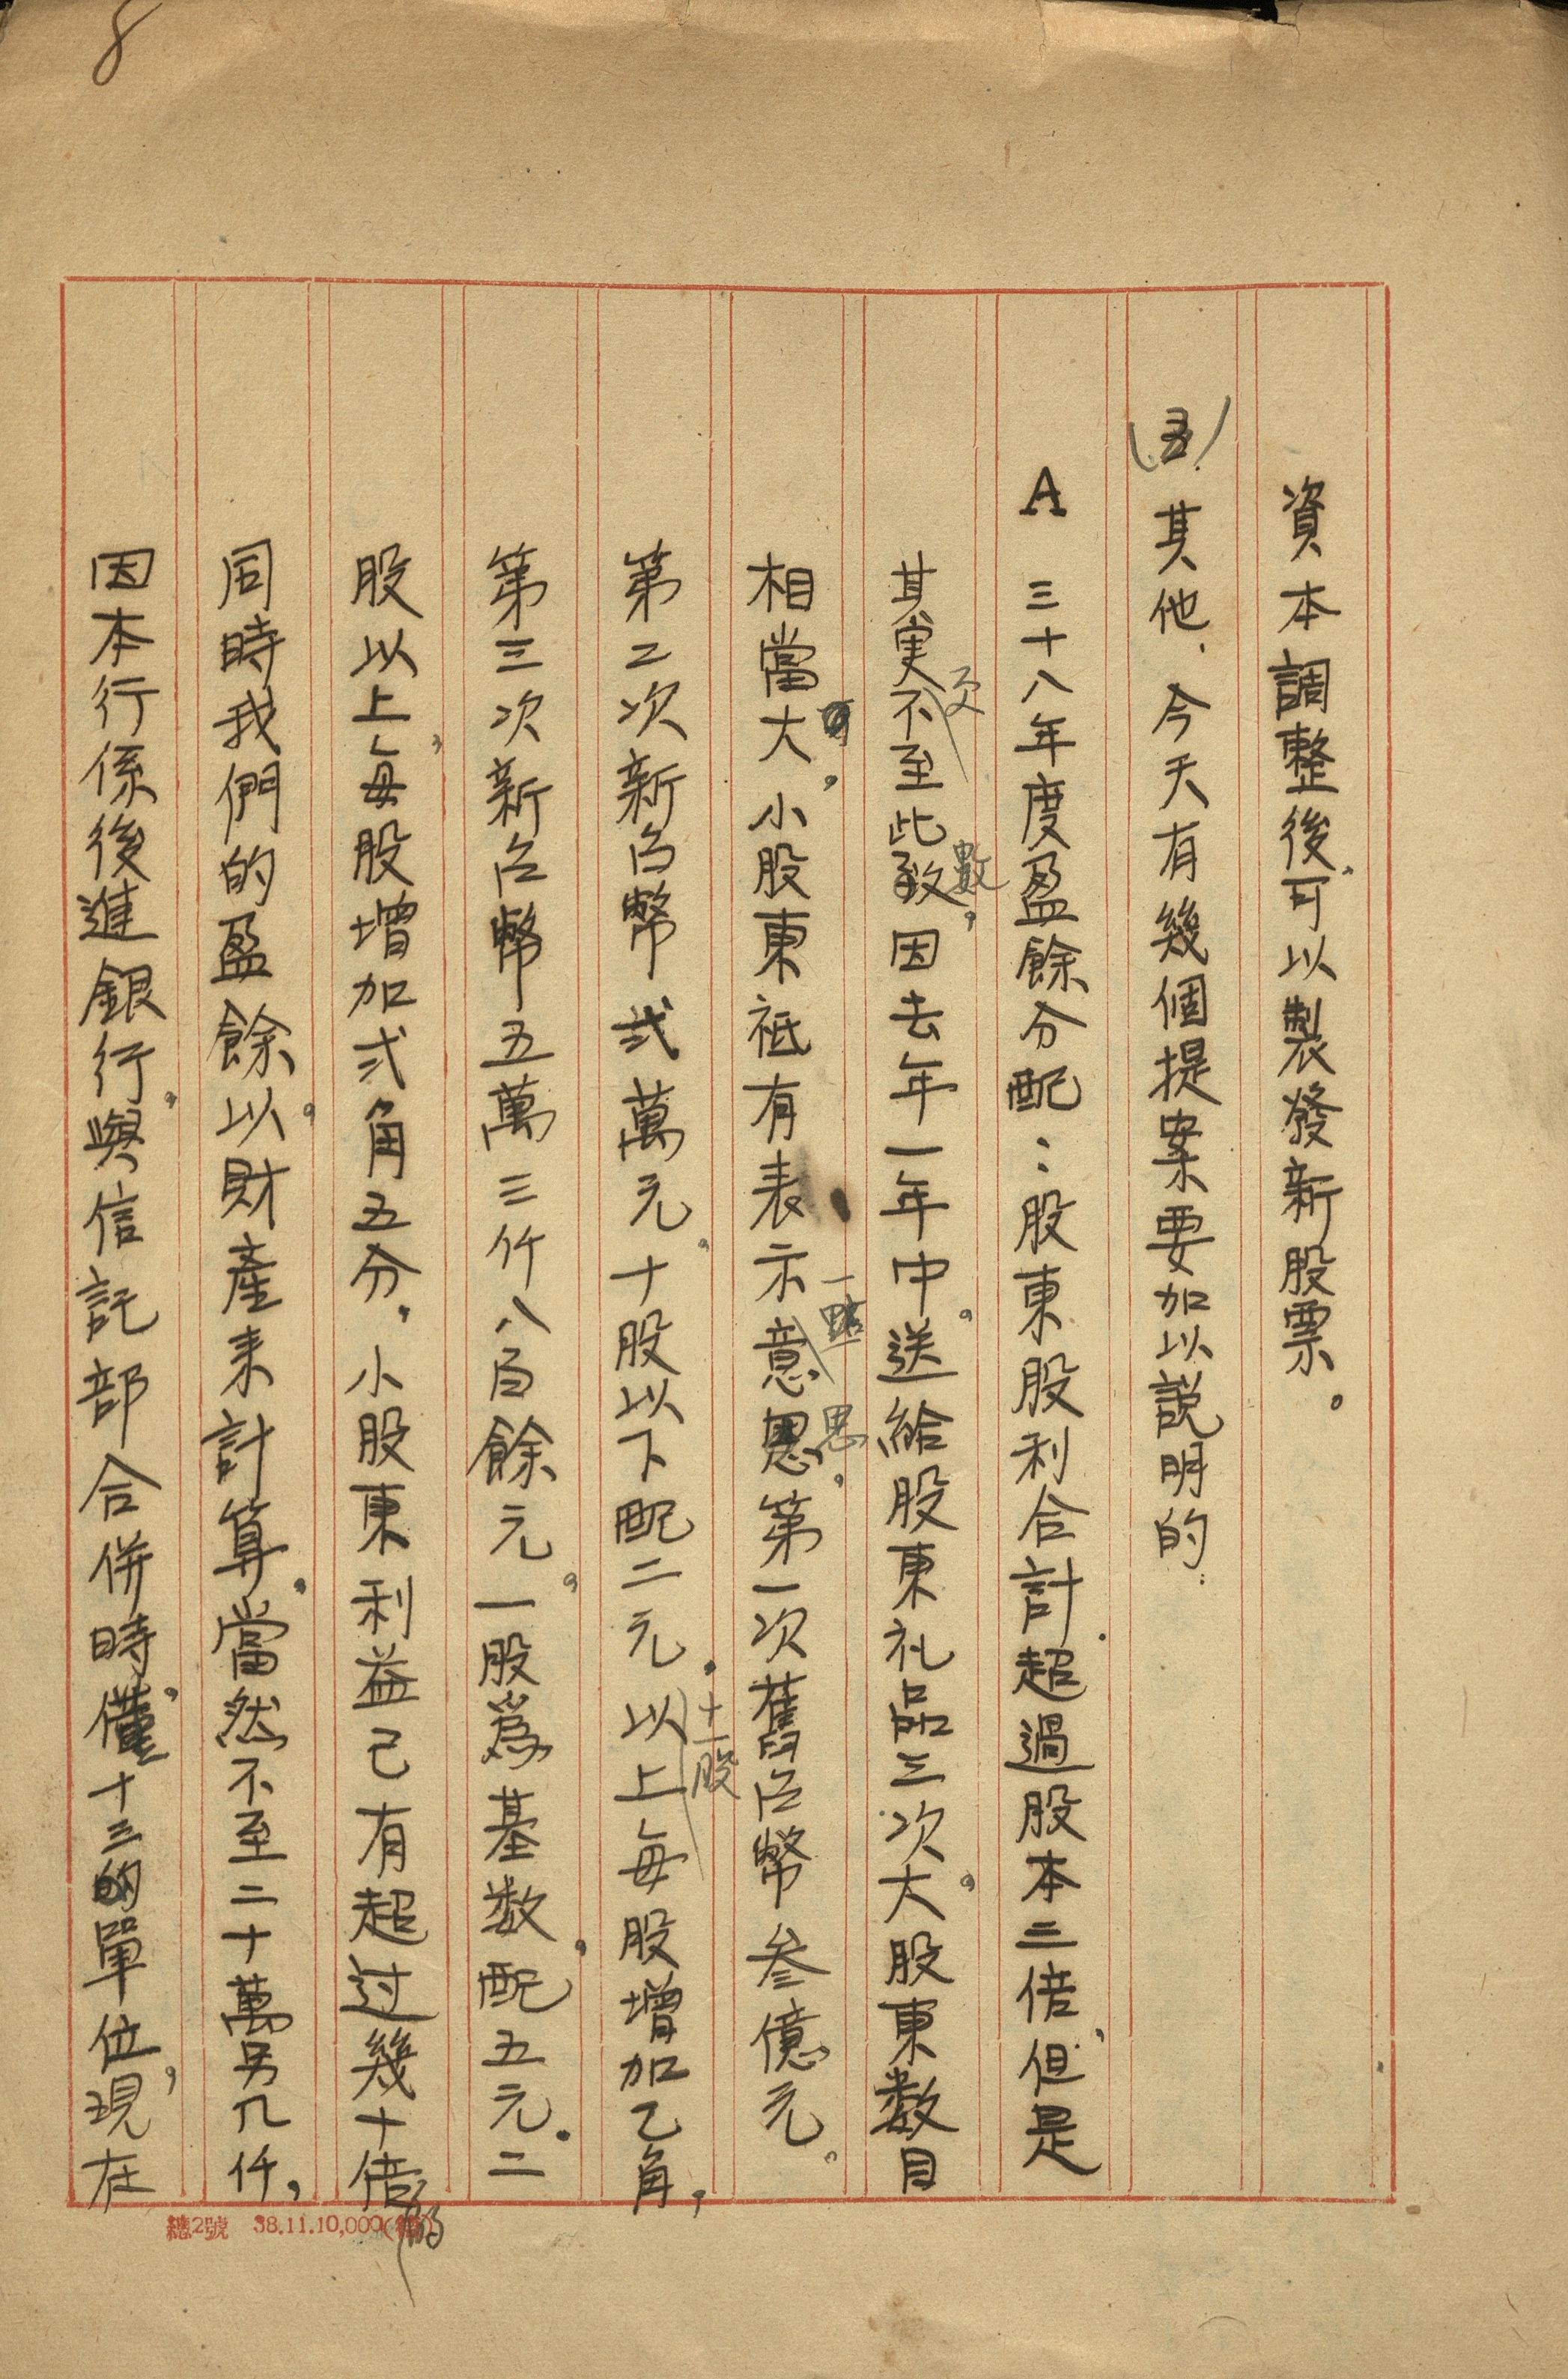 8
資本調整後,可以製發新股票。
(五)其他.今天有幾個提案要加以說明的.
A 三十八年度盈餘分配:股東股利合計.超過股本二倍,但是
其実又不至此数數,因去年一年中,送給股東礼品三次,大股東数目
相當大,小股東祗有表示一點意思思,第一次舊台幣叁億元。
第二次新台幣弍萬元,十股以下配二元.十一股以上每股增加乙角,
第三次新台幣五萬三仟八百餘元,一股爲基数,配五元.二
股以上,每股增加弍角五分.小股東利益已有超过幾十倍的,
同時我們的盈餘,以財產来計算,當然不至二十萬另几仟,
因本行係後進銀行,與信託部合併時,僅十三的單位,現在
總2號 38.11.10,000